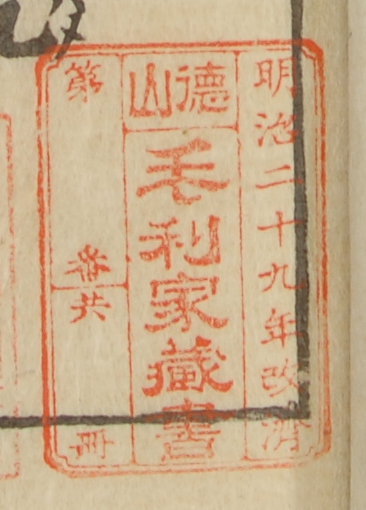 明治二十九年改済
德山
毛利家藏書
第
番共
冊